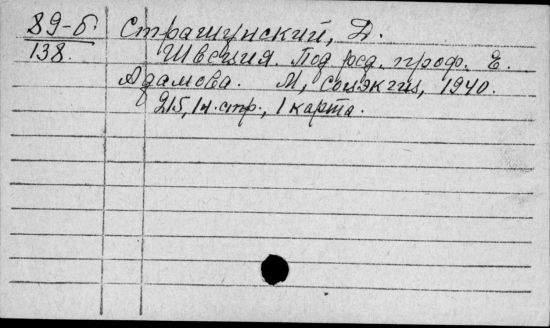 89-б Страшунский, Д.
138. Швеция. Под ред. проф. Е.
Адамова. М, Соцэкгиз, 1940.
215, 1 н. стр., 1 карта.